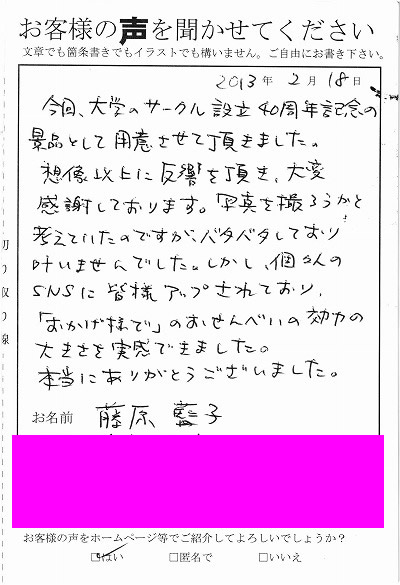 お客様の声を聞かせてください
文章でも箇条書きでもイラストでも構いません。ご自由にお書き下さい。
2013年 2月 18日
今回、大学のサークル設立40周年記念の
景品として用意させて頂きました。
想像以上に反響を頂き、大変
感謝しております。写真を撮ろうかと
考えていたのですが、バタバタしており
叶いませんでした。しかし、個々人の
SNSに皆様アップされており、
「おかげ様で」のおせんべいの効力の
大きさを実感できました。
本当にありがとうございました。
お名前 藤原 藍子
お客様の声をホームページ等でご紹介してよろしいでしょうか?
□はい □匿名で □いいえ